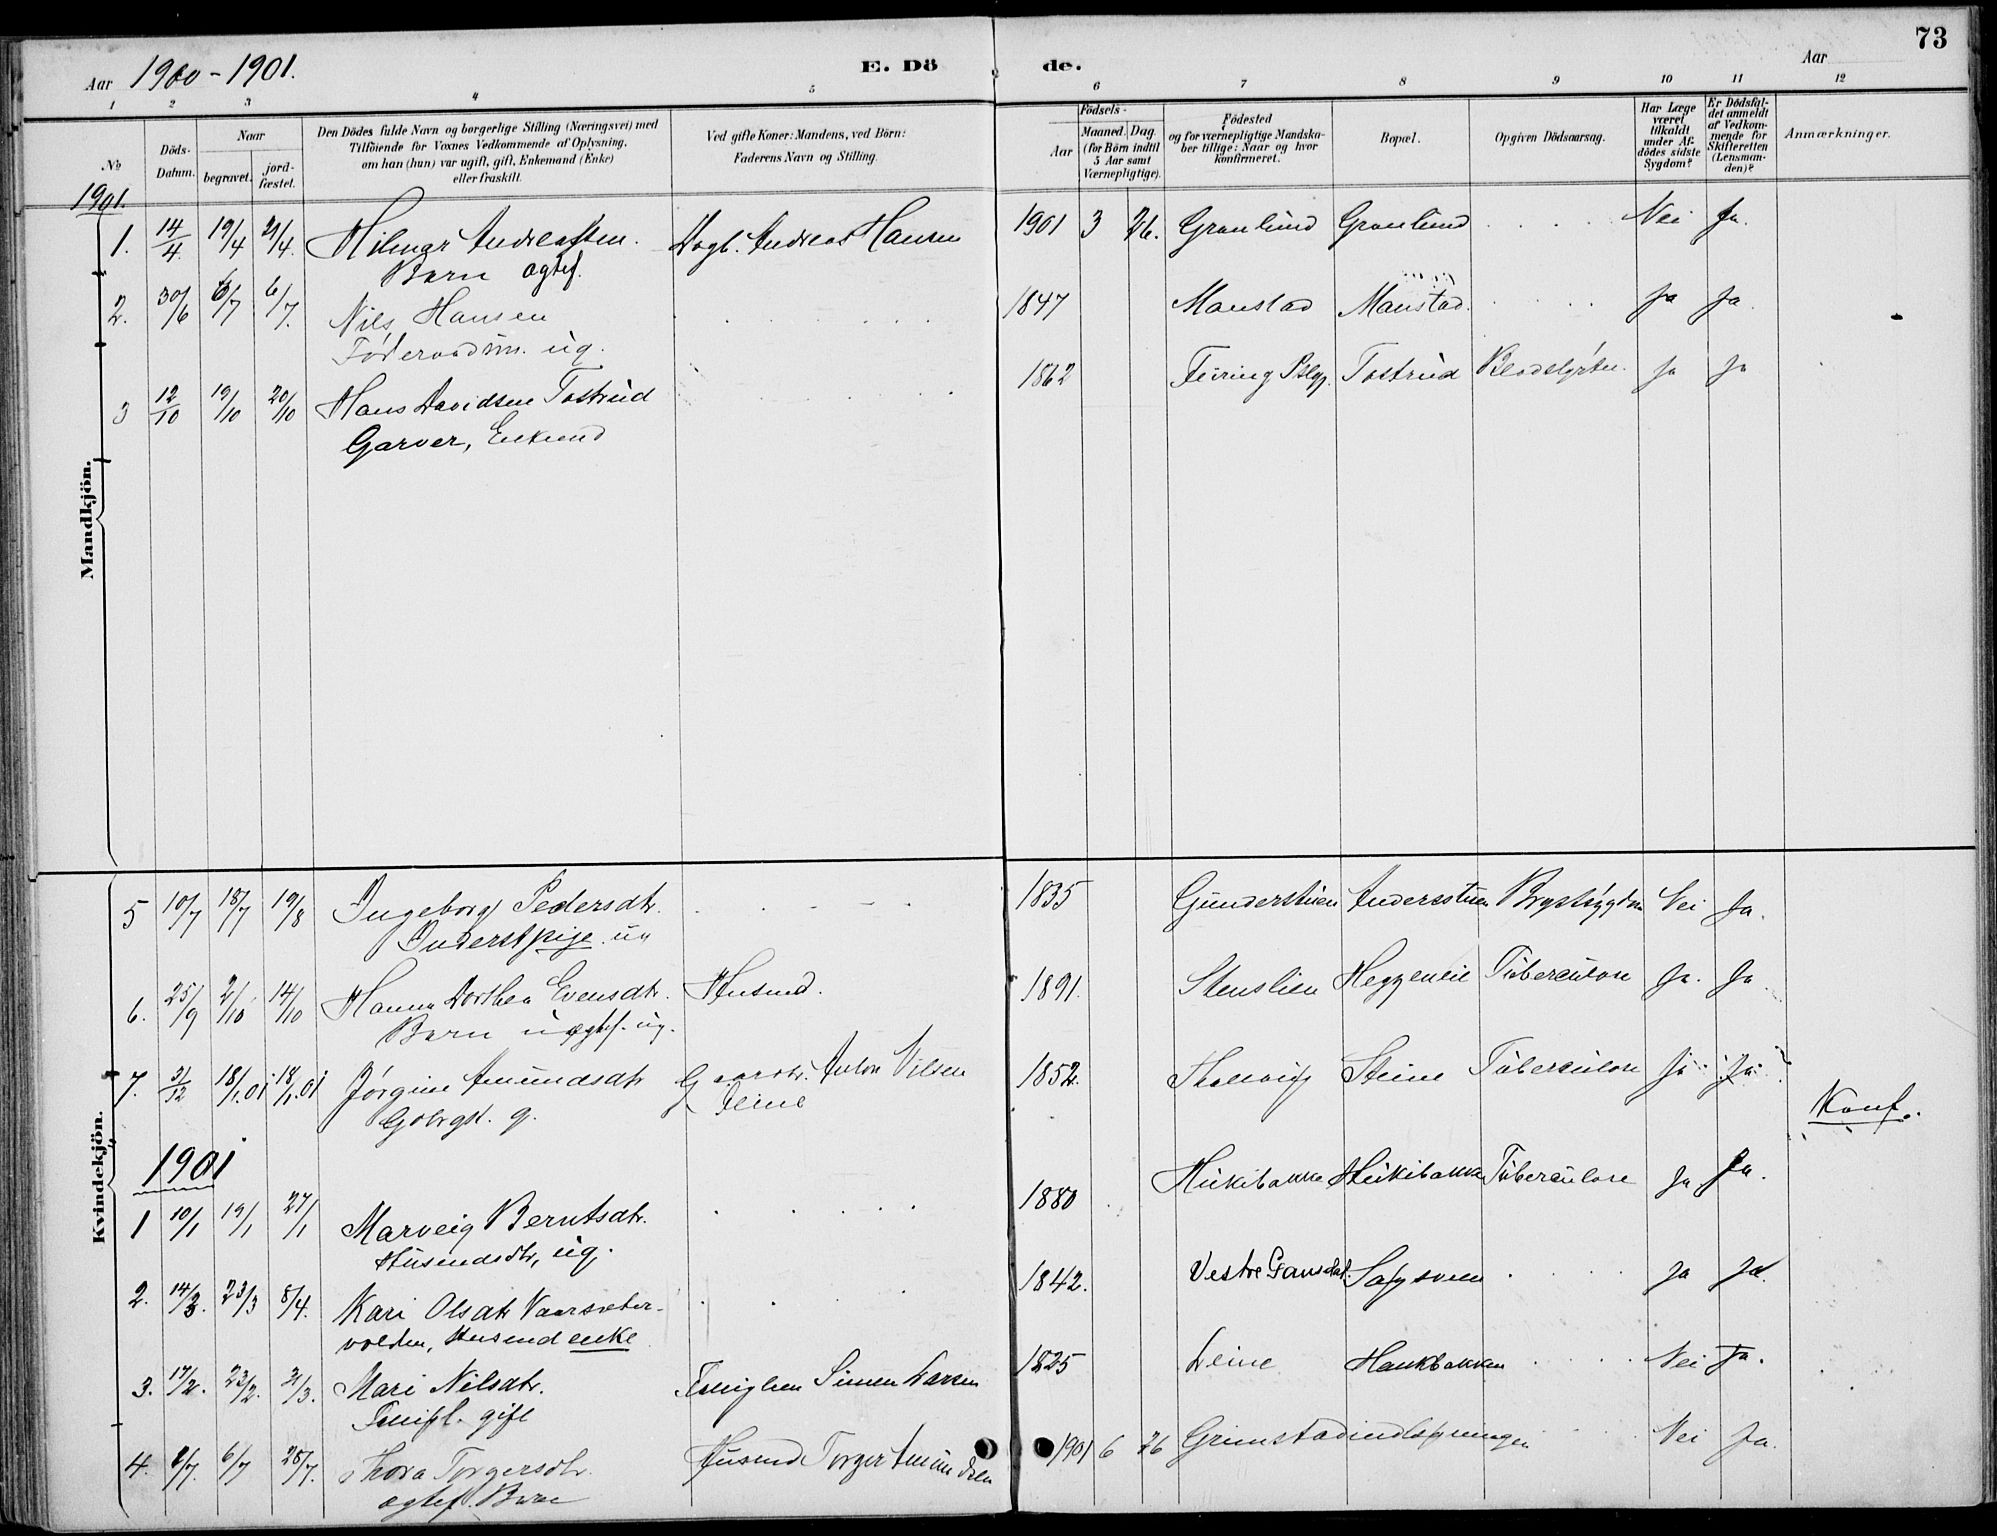 Aar 1900-1901. E. Dö de. Aar 73
1 2 3 4 5 6 7 8 9 10 11 12
№
Döds-Datum.
Naar
begravet. jordfæstet.
Den Dödes fulde Navn og borgerlige Stilling (Næringsvei) med
Tilföiende for Voxnes Vedkommende af Oplysning,
om han (hun) var ugift, gift, Enkemand (Enke)
eller fraskilt.
Ved gifte Koner: Mandens, ved Börn:
Faderens Navn og Stilling.
Födsels-
Aar Maaned. Dag.
(for Börn indtil
5 Aar samt
Værnepligtige).
Födested
og for værnepligtige Mandskaber tillige: Naar og hvor
Konfirmeret.
Bopæl.
Opgiven Dödsaarsag.
Har Læge
været
tilkaldt
under Afdödes sidste
Sygdom?
Er Dödsfaldet anmeldt
af Vedkommende for
Skifteretten
(Lensmanden)?
Anmærkninger.
Mandkjön.
1901.
1. 14/4 19/4 21/4. Hilmar Andreassen. Dagl. Andreas Hansen 1901 3 26. Granlund Granlund Nei Ja.
Barn ægtef.
2. 30/6 6/7 6/7. Nils Hansen 1847 Manstad Manstad. Ja Ja
Föderaadsm. ug.
3 12/10 19/10 20/10 Hans Davidsen Tostrud 1862 Feiring Tostrud Ja Ja
Garver, Enkemd
Kvindekjön.
5 10/7 18/7 19/8 Ingeborg Pedersdtr. 1835 Gunderstuen Andersstuen Brystsygdom Nei Ja.
Inderstpige ug
6. 25/9 2/10 14/10 Hanna Dorthea Evensdtr. Husmd. 1891. Stenslien Heggenlie Tuberculose Ja. Ja
Barn uægtef. ug.
7. 31/12 18/1.01 18/1.01 Jörgine Amundsdtr Anton Nilsen 1852. Steine Tuberculose Ja Ja
g. Steine
Konf.
1901
1 10/1 19/1 27/1 Marveig Berntsdtr. 1880 Hukibakke Hukibakke Tuberculose Ja Ja.
Husmdsdtr, ug.
2. 14/3. 23/3 8/4. Kari Olsdtr 1842. Vestre Sagsveen Ja Ja.
volden, Husmd enke
3. 17/2. 23/2. 21/3. Mari Nilsdtr. Simen Larsen 1825 Leine Haukbakken Nei Ja.
gift
4. 2/7. 6/7 28/7. Thora Torgersdtr. Husmd Torger Amundsen 1901 6 26 Nei Ja.
ægtef. Barn